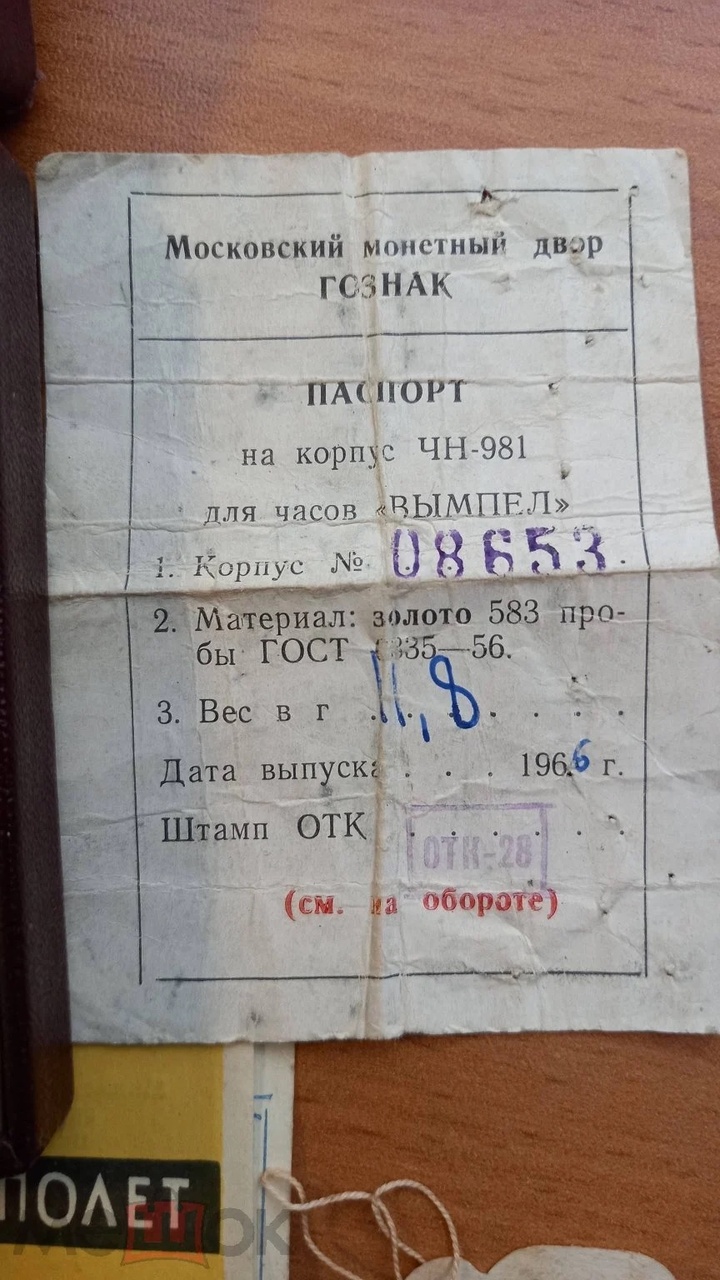 Московский монетный двор
ГОЗНАК
ПАСПОРТ
на корпус ЧН-981
для часов «ВЫМПЕЛ»
1. Корпус № 08653.
2. Материал: золото 583 про-
бы ГОСТ 6835—56.
3. Вес в г 11,8
Дата выпуска . . . 1966 г.
Штамп ОТК . . . . . .
ОТК-28
(см. на обороте)
ПОЛЕТ
МешОК